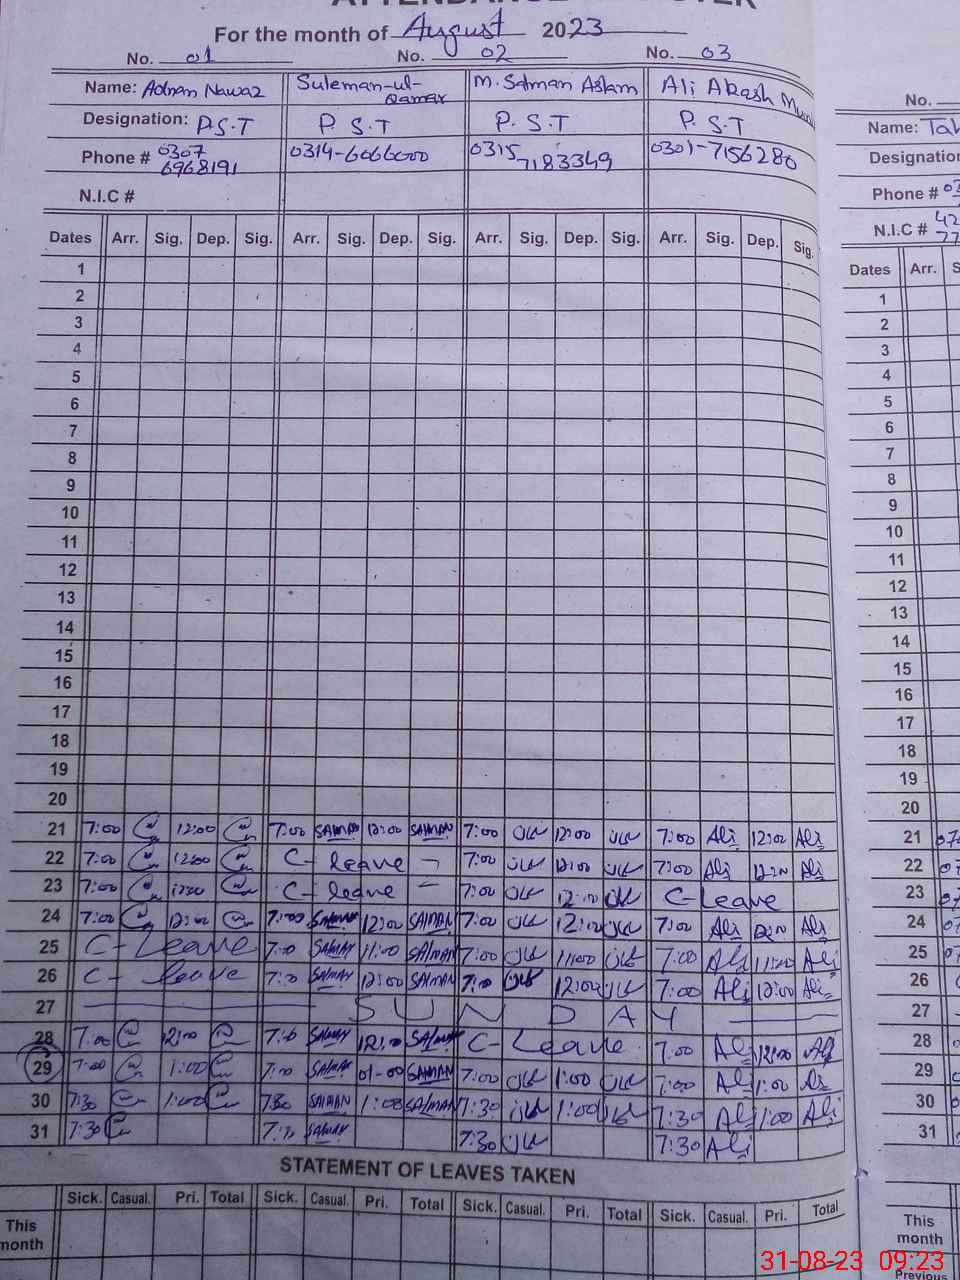 ATTENDANCE REGISTER
For the month of August 2023
No. 01 No. 02 No. 03
Name: Adnan Nawaz Suleman-ul-Qamar M. Salman Aslam Ali Akash
Designation: P.S.T P.S.T P.S.T P.S.T
Phone # 0307 6968191 0314-6066000 0315 7183349 0301-7156280
N.I.C #
Dates Arr. Sig. Dep. Sig. Arr. Sig. Dep. Sig. Arr. Sig. Dep. Sig. Arr. Sig. Dep. Sig.
1
2
3
4
5
6
7
8
9
10
11
12
13
14
15
16
17
18
19
20
21 7:00 12:00 7:00 SALMAN 12:00 SALMAN 7:00 12:00 7:00 Ali 12:00 Ali
22 7:00 12:00 C-leave 7:00 12:00 7:00 Ali 12:00 Ali
23 7:00 12:00 C-leave 7:00 12:00 C-Leave
24 7:00 12:00 7:00 SALMAN 12:00 SALMAN 7:00 12:00 7:00 Ali 12:00 Ali
25 C-Leave 7:00 SALMAN 11:00 SALMAN 7:00 11:00 7:00 Ali 11:00 Ali
26 C-leave 7:00 SALMAN 12:00 SALMAN 7:00 12:00 7:00 Ali 12:00 Ali
27 SUNDAY
28 7:00 12:00 7:00 SALMAN 12:00 SALMAN C-Leave 7:00 Ali 12:00 Ali
29 7:00 1:00 7:00 SALMAN 01-00 SALMAN 7:00 1:00 7:00 Ali 1:00 Ali
30 7:30 1:00 7:30 SALMAN 1:00 SALMAN 7:30 1:00 7:30 Ali 1:00 Ali
31 7:30 7:30 SALMAN 7:30 7:30 Ali
STATEMENT OF LEAVES TAKEN
Sick. Casual. Pri. Total Sick. Casual. Pri. Total Sick. Casual. Pri. Total Sick. Casual. Pri. Total
This month
No.
Name:
Designation
Phone #
N.I.C #
Dates Arr.
1
2
3
4
5
6
7
8
9
10
11
12
13
14
15
16
17
18
19
20
21
22
23
24
25
26
27
28
29
30
31
This month
Previous
31-08-23 09:23